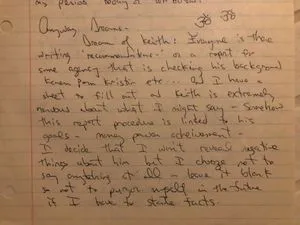 as period
Anyway, Dreams - ॐ ॐ
Dream of Keith: Imagine is there
writing 'recommendations' or a report for
some agency that is checking his background
Karen Pam Kristin etc... and I have a
sheet to fill out and Keith is extremely
nervous about what I might say - Somehow
this report procedure is linked to his
goals - money power acheivement -
I decide that I won't reveal negative
things about him but I choose not to
say anything at all - leave it blank
so not to purger myself in the future
if I have to state facts.